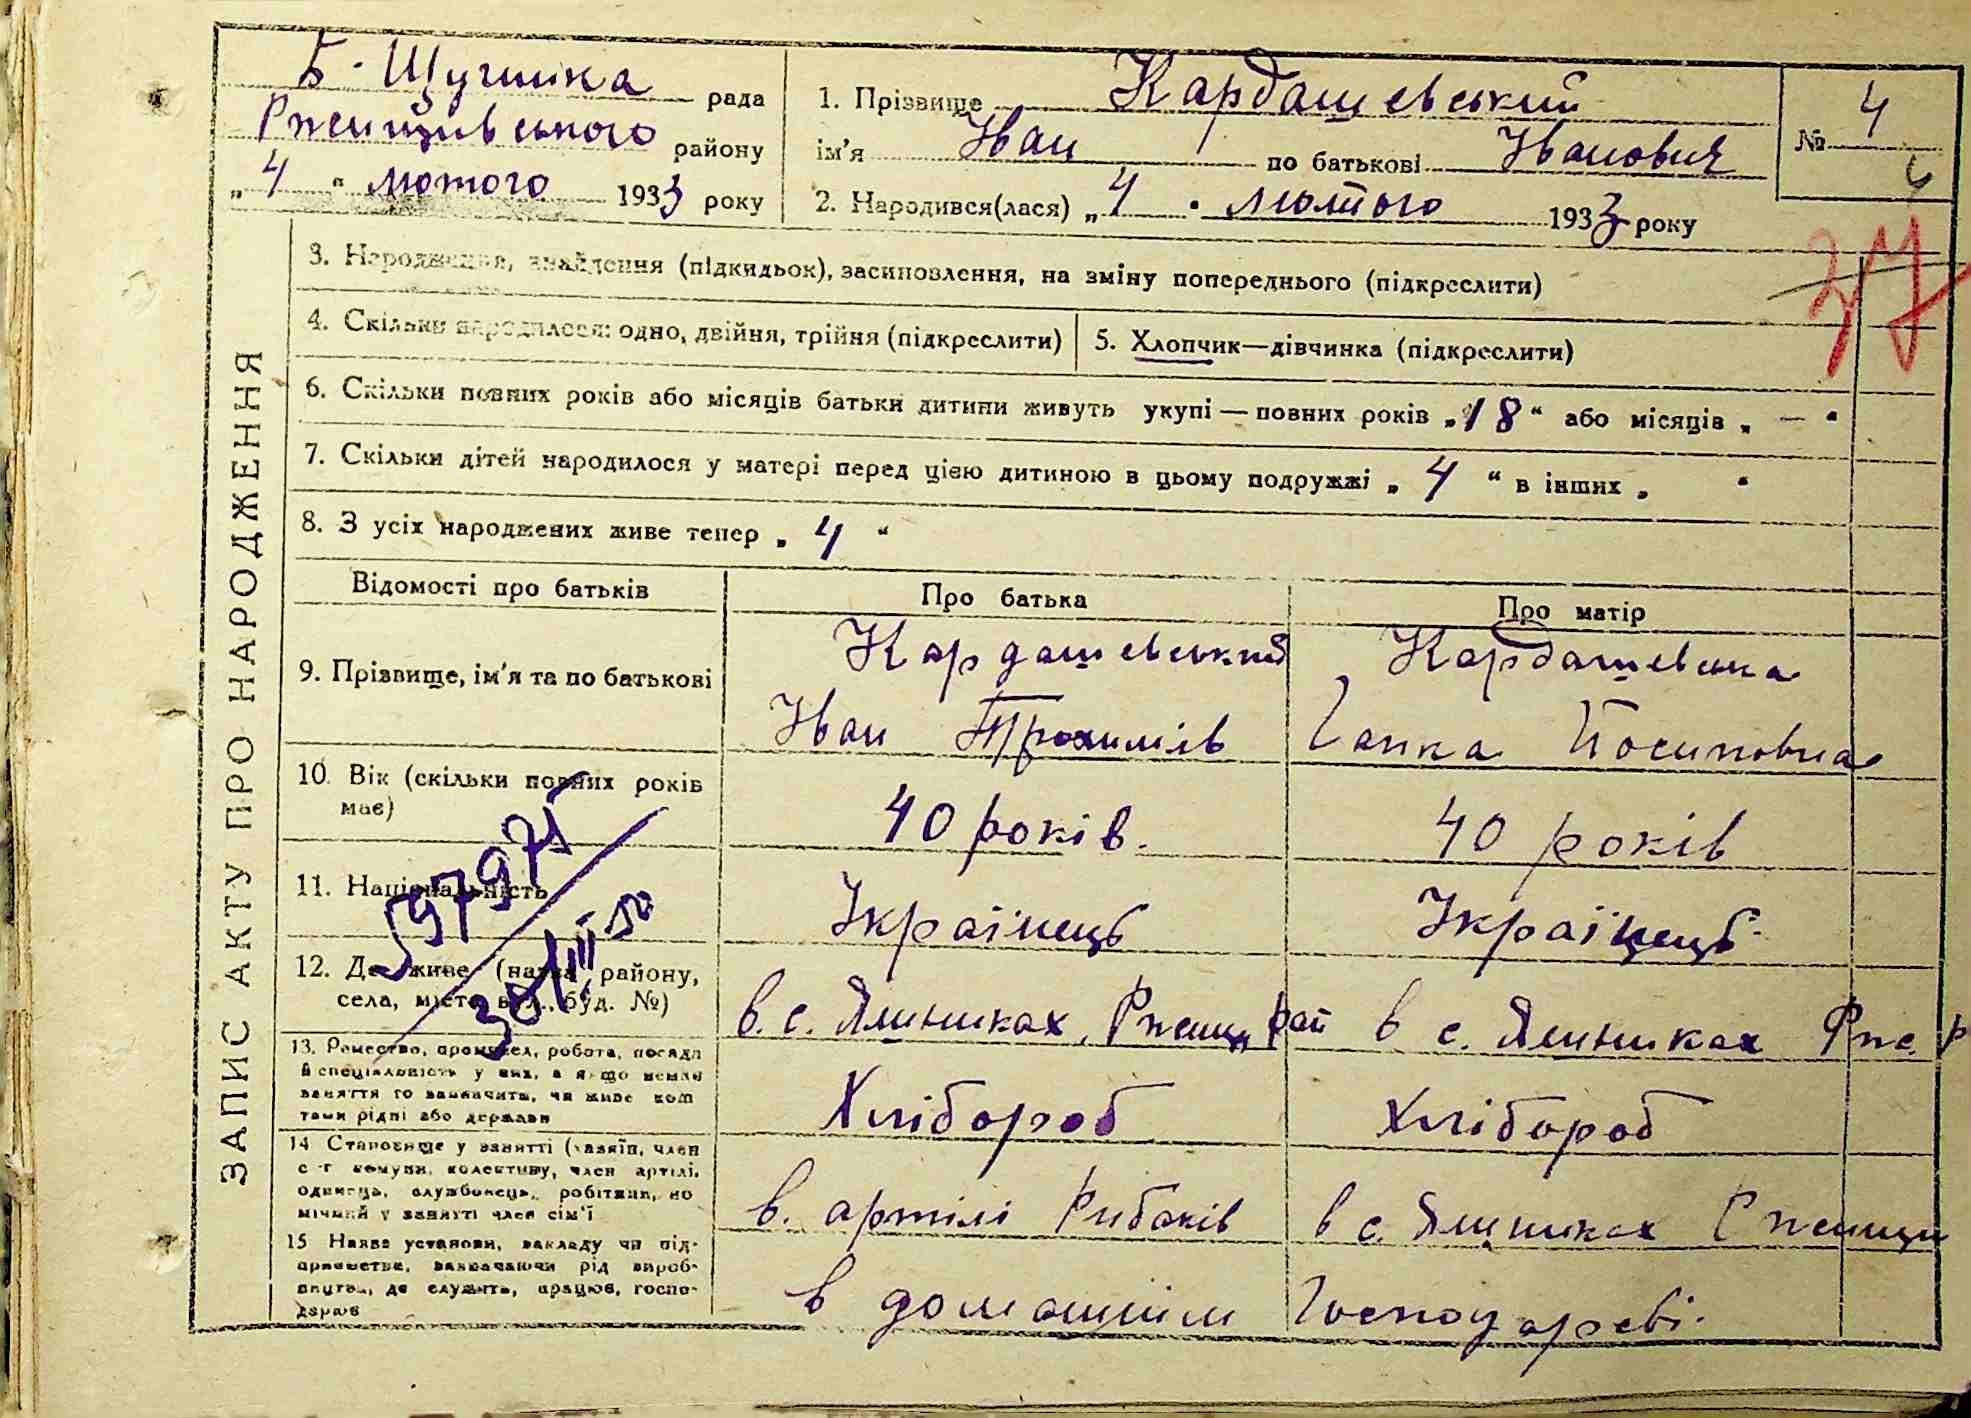 Б. Щучинка рада
Ржищивського району
„4“ лютого 1933 року
1. Прізвище Кардашевський
ім'я Іван по батькові Іванович
№ 4
4
2. Народився(лася) „4 • лютого 1933 року
37
ЗАПИС АКТУ ПРО НАРОДЖЕННЯ
3. Народження, знайдення (підкидьок), засиновлення, на зміну попереднього (підкреслити)
4. Скільки народилося: одно, двійня, трійня (підкреслити)
5. Хлопчик—дівчинка (підкреслити)
6. Скільки повних років або місяців батьки дитини живуть укупі — повних років „18“ або місяців „ — “
7. Скільки дітей народилося у матері перед цією дитиною в цьому подружжі „ 4 “ в інших „ “
8. З усіх народжених живе тепер „ 4 “
Відомості про батьків
Про батька
Про матір
9. Прізвище, ім'я та по батькові
Кардашевський
Іван Трохимів
Кардашевська
Ганка Йосиповна
10. Вік (скільки повних років
має)
40 років.
40 років
11. Національність
Українець
Українець
597975
12. Де живе (назва району,
села, міста, вул., буд. №)
в. с. Ялиниках, Ржищ рай
в с. Ялиниках Рж. р
13. Ремество, промисел, робота, посада
й спеціяльність у них, а якщо немає
заняття то зазначити, чи живе кош
тами рідні або держави
Хлібороб
Хлібороб
14 Становище у занятті (хазяїн, член
с-г комуни, колективу, член артілі,
одинець, службовець, робітник, по
мічний у занятті член сім'ї
в. артілі Рибаків
в с. Ялиниках Ржищи
15 Назва установи, закладу чи під-
приємства, зазначаючи рід вироб-
ництва, де служить, працює, госпо-
дарює
в домашнім Господарсві.